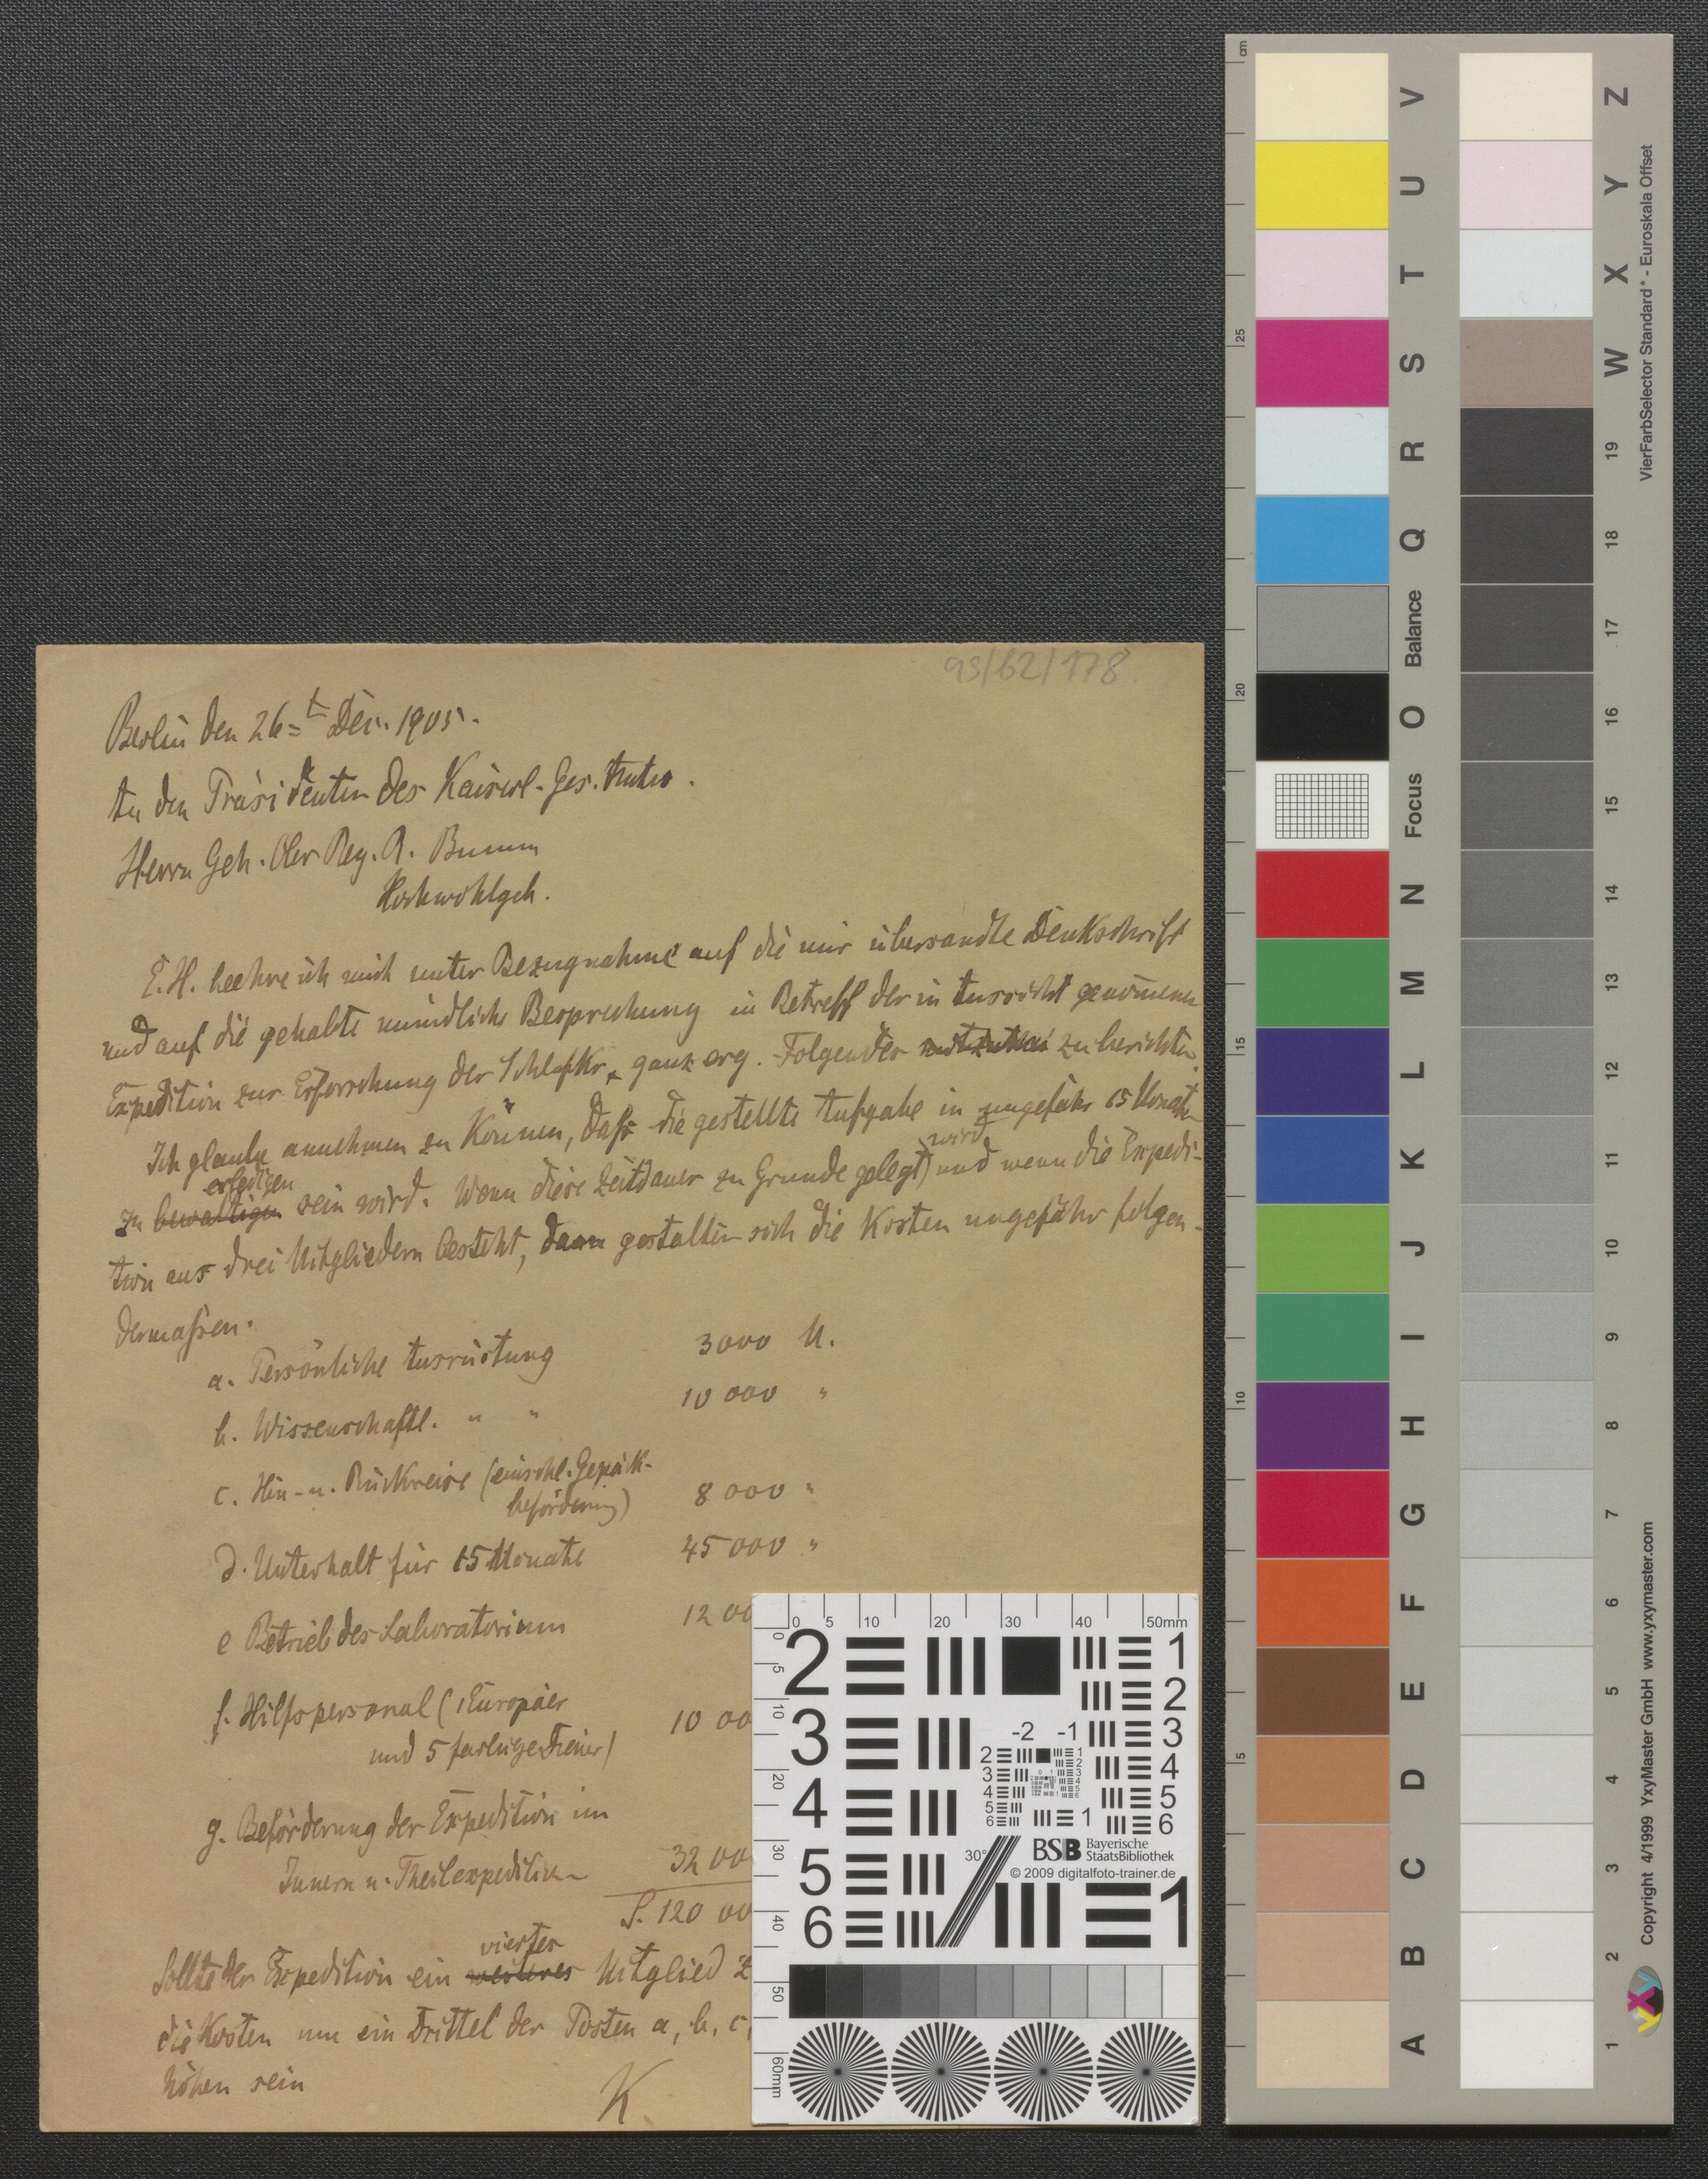 93/62/178
Berlin den 26= t Dec. 1905.
An den Präsidenten des Kaiserl. Ges. Amtes.
Herrn Geh. Ober Reg. R. Bumm
Hochwohlgeb.
E. H. beehre ich mich unter Bezugnahme auf die mir übersandte Denkschrift
und auf die gehabte mündliche Besprechung in Betreff der in Aussicht genommenen
Expedition zur Erforschung der Schlafkr. ganz erg. Folgendes mitzuthei zu berichten.
Ich glaube annehmen zu können, daß die gestellte Aufgabe in ungefähr 15 Monaten
erledigen wird
zu bewältigen sein wird. Wenn diese Zeitdauer zu Grunde gelegt und wenn die Expedi-
tion aus drei Mitgliedern besteht, dann gestalten sich die Kosten ungefähr folgen-
dermaßen.
a. Persönliche Ausrüstung 3000 M.
b. Wissenschaftl. " " 10 000 "
c. Hin- u. Rückreise (einschl. Gepäck-
beförderung) 8 000 "
d. Unterhalt für 15 Monate 45 000 "
e Betrieb des Laboratorium 12 00
f. Hilfspersonal (1 Europäer 10 00
und 5 farbige Diener)
g. Beförderung der Expedition im
Innern u. Theilexpedition 32 00
S. 120 00
vierter
Sollte der Expedition ein weiteres Mitglied z
die Kosten um ein Drittel der Posten a, b, c,
höher sein
K
0 5 10 20 30 40 50mm
0 5 10 20 30 40 50 60mm
2 3 4 5 6
1 2 3 4 5 6
-2 -1
1
30°
BSB Bayerische
StaatsBibliothek
© 2009 digitalfoto-trainer.de
1
cm
25
20
15
10
5
V U T S R Q Balance O Focus N M L K J I H G F E D C B A
Z Y X W 19 18 17 16 15 14 13 12 11 10 9 8 7 6 5 4 3 2 1
VierFarbSelector Standard* - Euroskala Offset
Copyright 4/1999 YxyMaster GmbH www.yxymaster.com
yxy